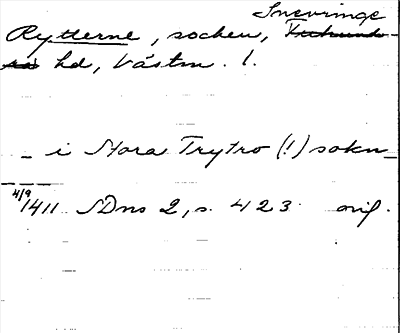 Snevringe
Rytterne, socken, Trehund-
ra hd, Västm. l.
_ i Stora Trytro (!) sokn_
4/9
1411 SDns 2, s. 423 orig.